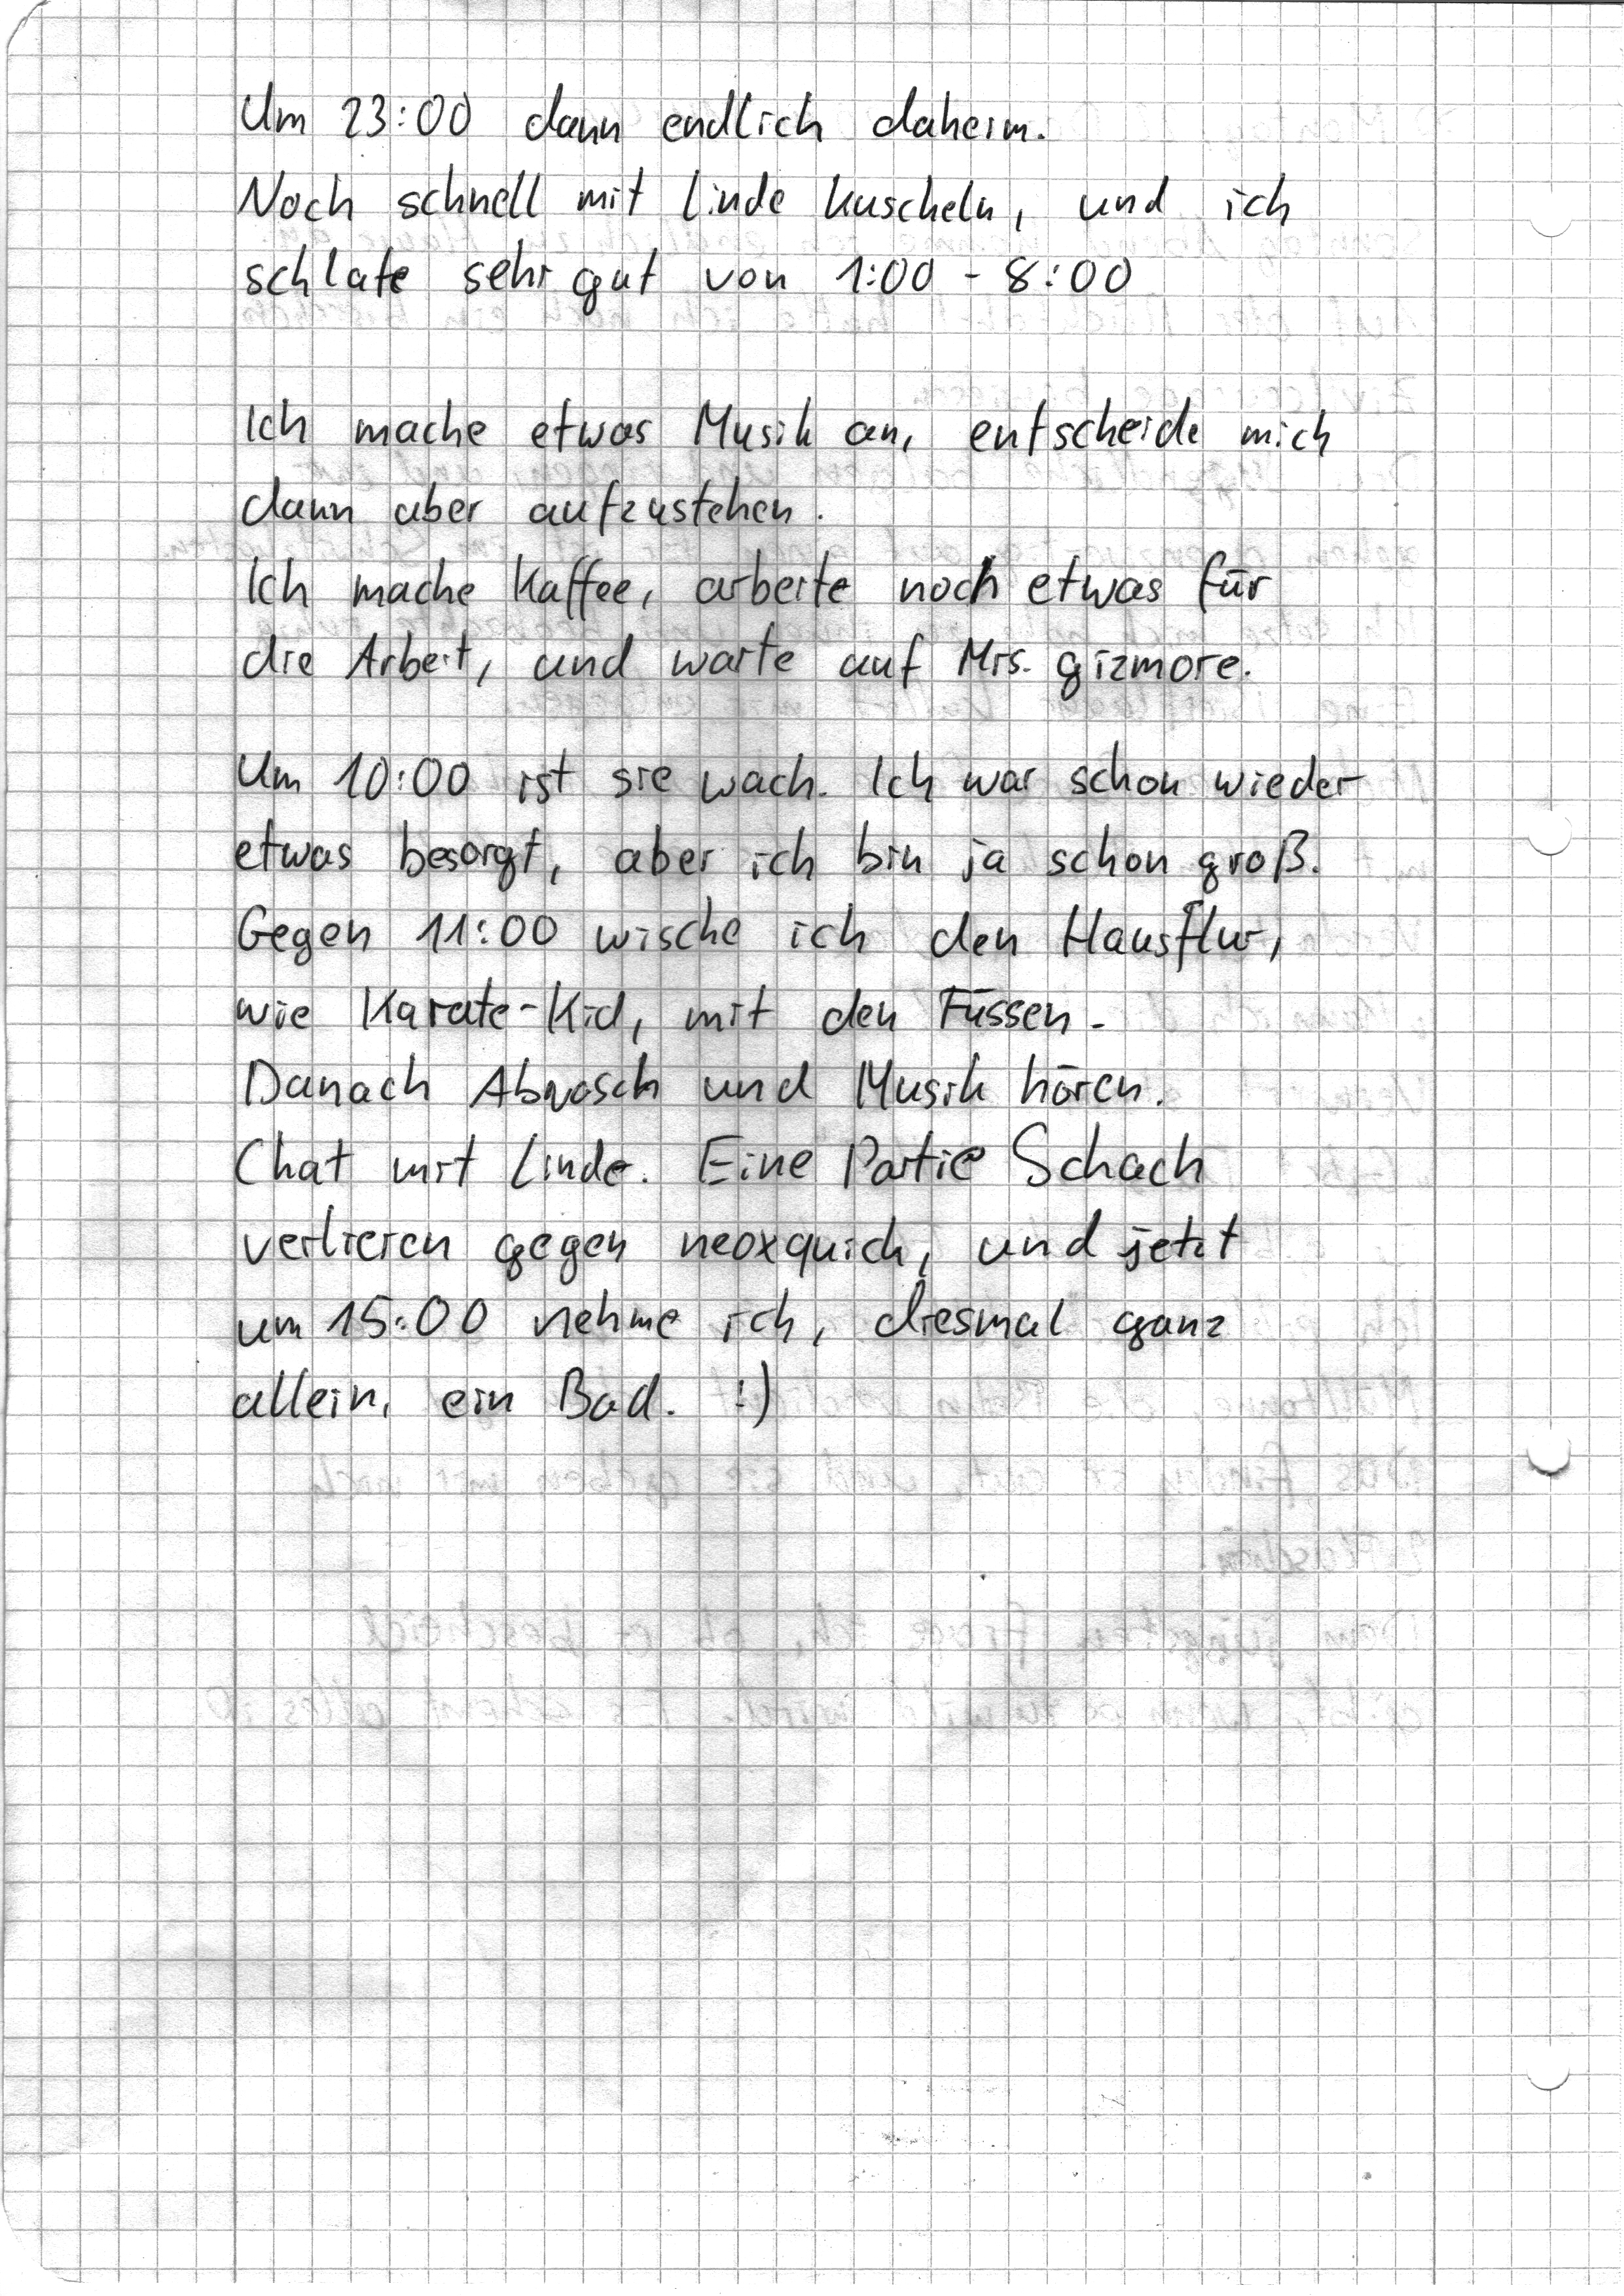 Um 23:00 dann endlich daheim.
Noch schnell mit Linde kuscheln, und ich
schlafe sehr gut von 1:00 - 8:00
Ich mache etwas Musik an, entscheide mich
dann aber aufzustehen.
Ich mache Kaffee, arbeite noch etwas für
die Arbeit, und warte auf Mrs. gizmore.
Um 10:00 ist sie wach. Ich war schon wieder
etwas besorgt, aber ich bin ja schon groß.
Gegen 11:00 wische ich den Hausflur,
wie Karate-Kid, mit den Füssen.
Danach Abwasch und Musik hören.
Chat mit Linde. Eine Partie Schach
verlieren gegen neoxquick, und jetzt
um 15:00 nehme ich, diesmal ganz
allein, ein Bad. :)